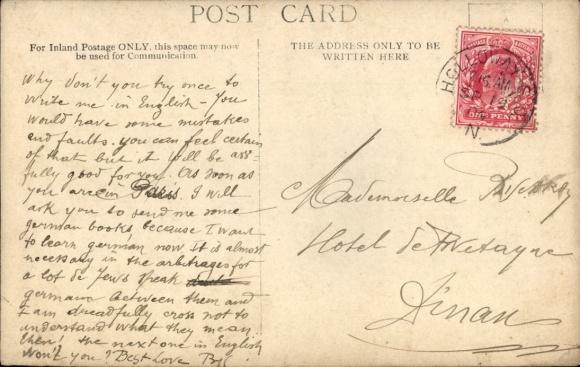 POST CARD
For Inland Postage ONLY, this space may now
be used for Communication.
THE ADDRESS ONLY TO BE
WRITTEN HERE
HOLLOWAY
N.
ONE PENNY
Why don't you try once to
write me in English – You
would have some mistakes
and faults. you can feel certain
of that but it will be aw-
fully good for you. As soon as
you are in Paris. I will
ask you to send me some
german books, because I want
to learn german now it is almost
necessary in the arbitrages for
a lot de Jews speak
germann between them and
I am dreadfully cross not to
understand what they mean
then! the next one in English
Won't you? Best Love
Mademoiselle
Hotel de Bretagne
Dinan